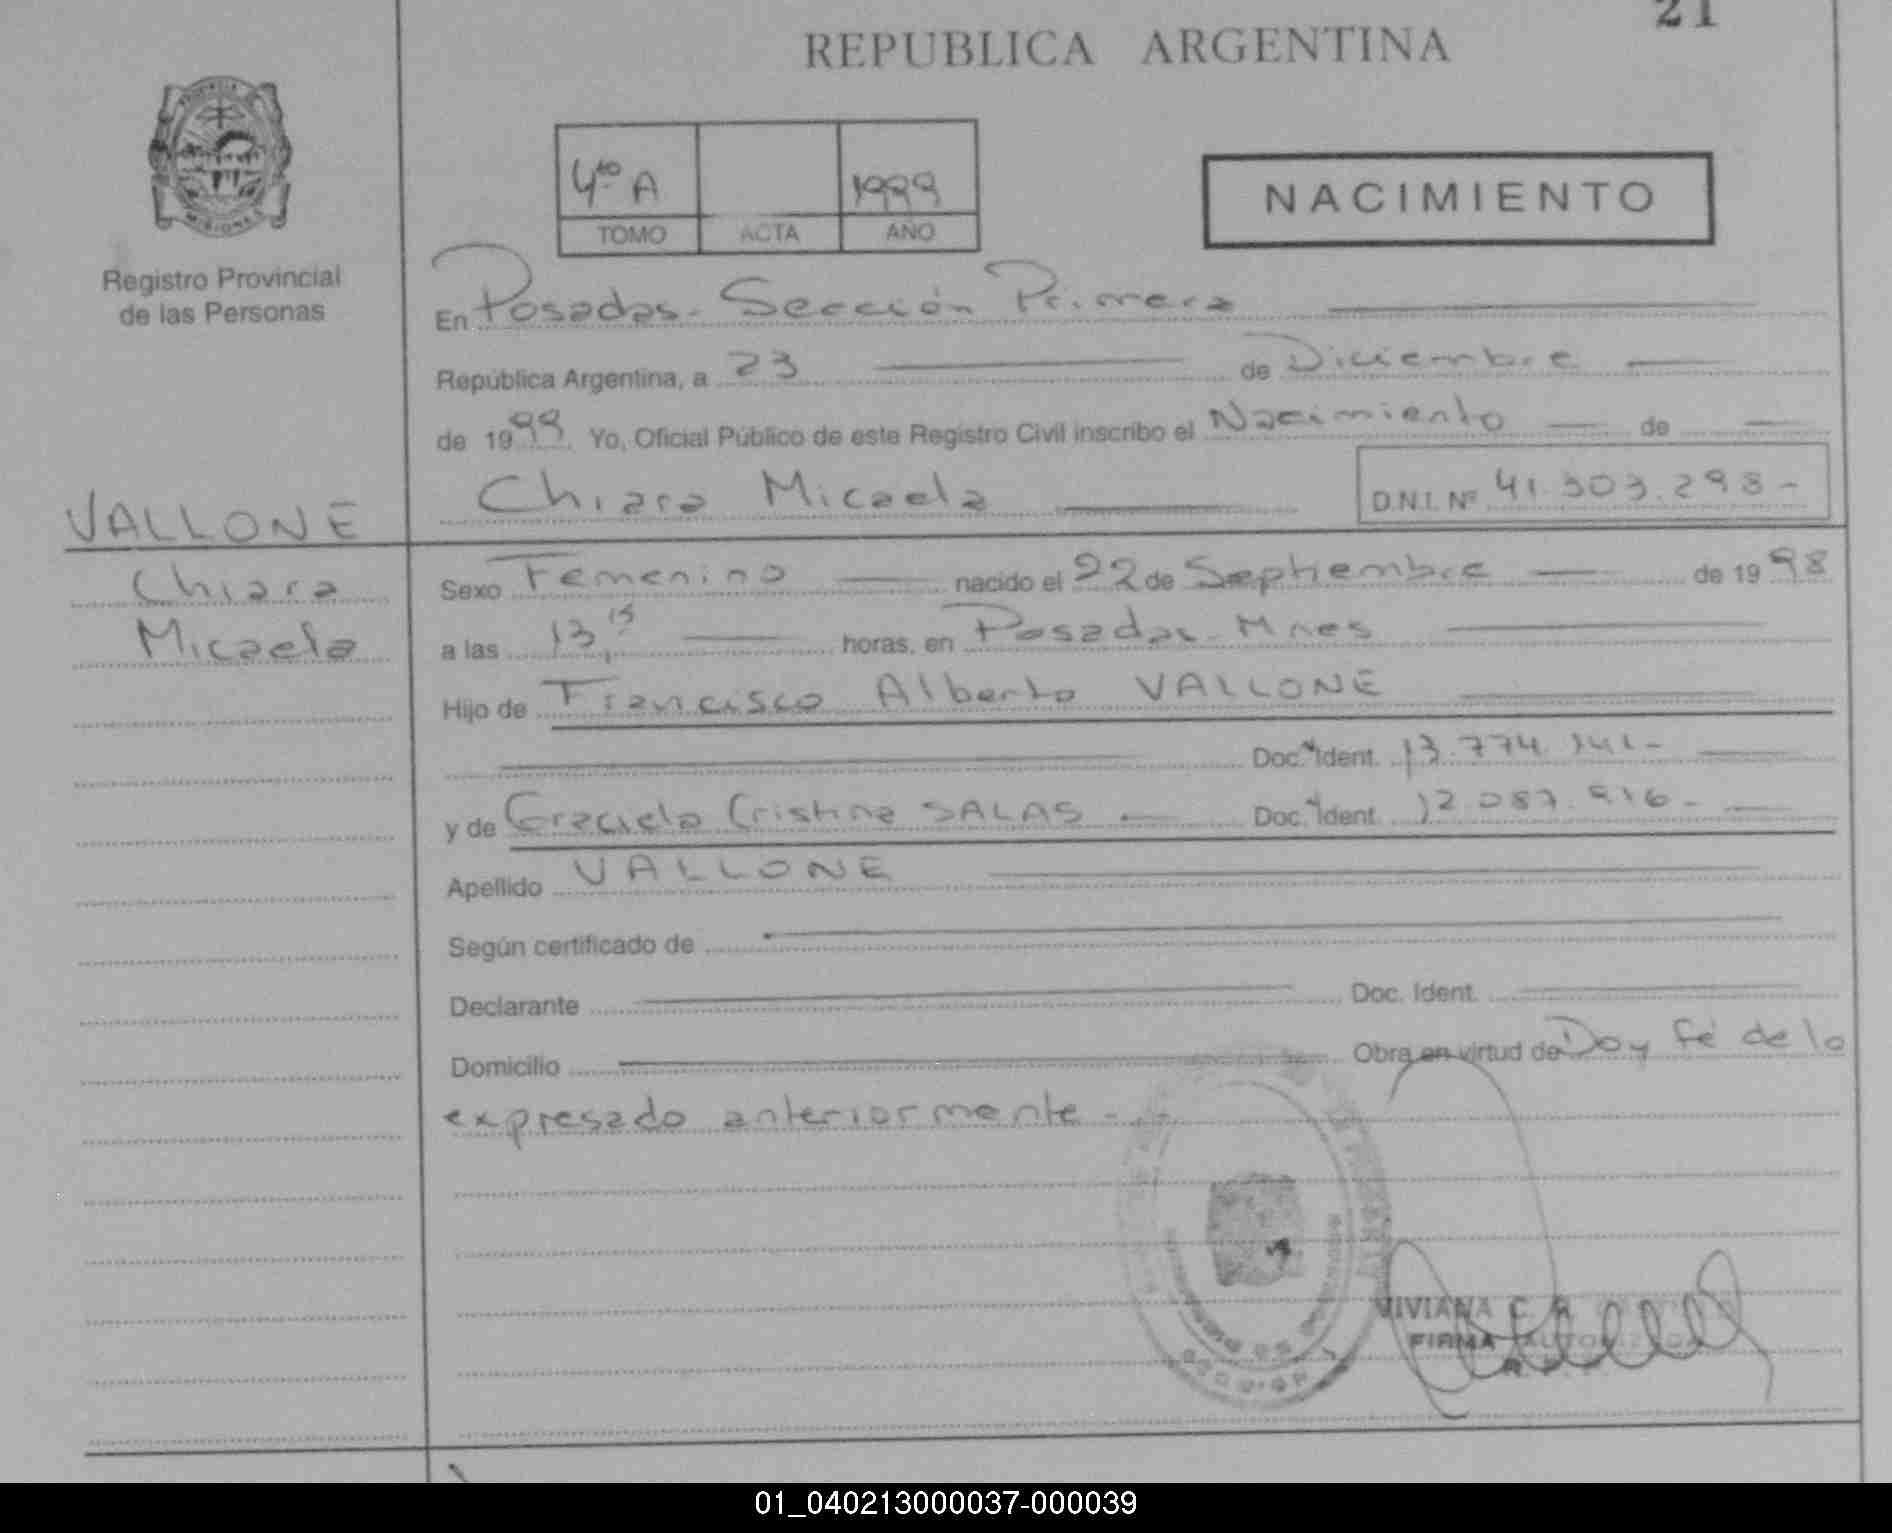 21
REPUBLICA ARGENTINA
Registro Provincial
de las Personas
4to A 1999
TOMO ACTA AÑO
NACIMIENTO
En Posadas - Sección Primera
República Argentina, a 23 de Diciembre
de 1999 Yo, Oficial Público de este Registro Civil inscribo el Nacimiento de
Chiara Micaela D.N.I. Nº 41.303.298 -
VALLONE
Chiara
Micaela
Sexo Femenino nacido el 22 de Septiembre de 1998
a las 13,15 horas, en Posadas - Mnes
Hijo de Francisco Alberto VALLONE
Doc. Ident. 13.774.141 -
y de Graciela Cristina SALAS Doc. Ident. 12.087.916 -
Apellido VALLONE
Según certificado de
Declarante Doc. Ident.
Domicilio Obra en virtud de Doy fé de lo
expresado anteriormente - . -
VIVIANA C.
FIRMA AUTORIZADA
01_040213000037-000039